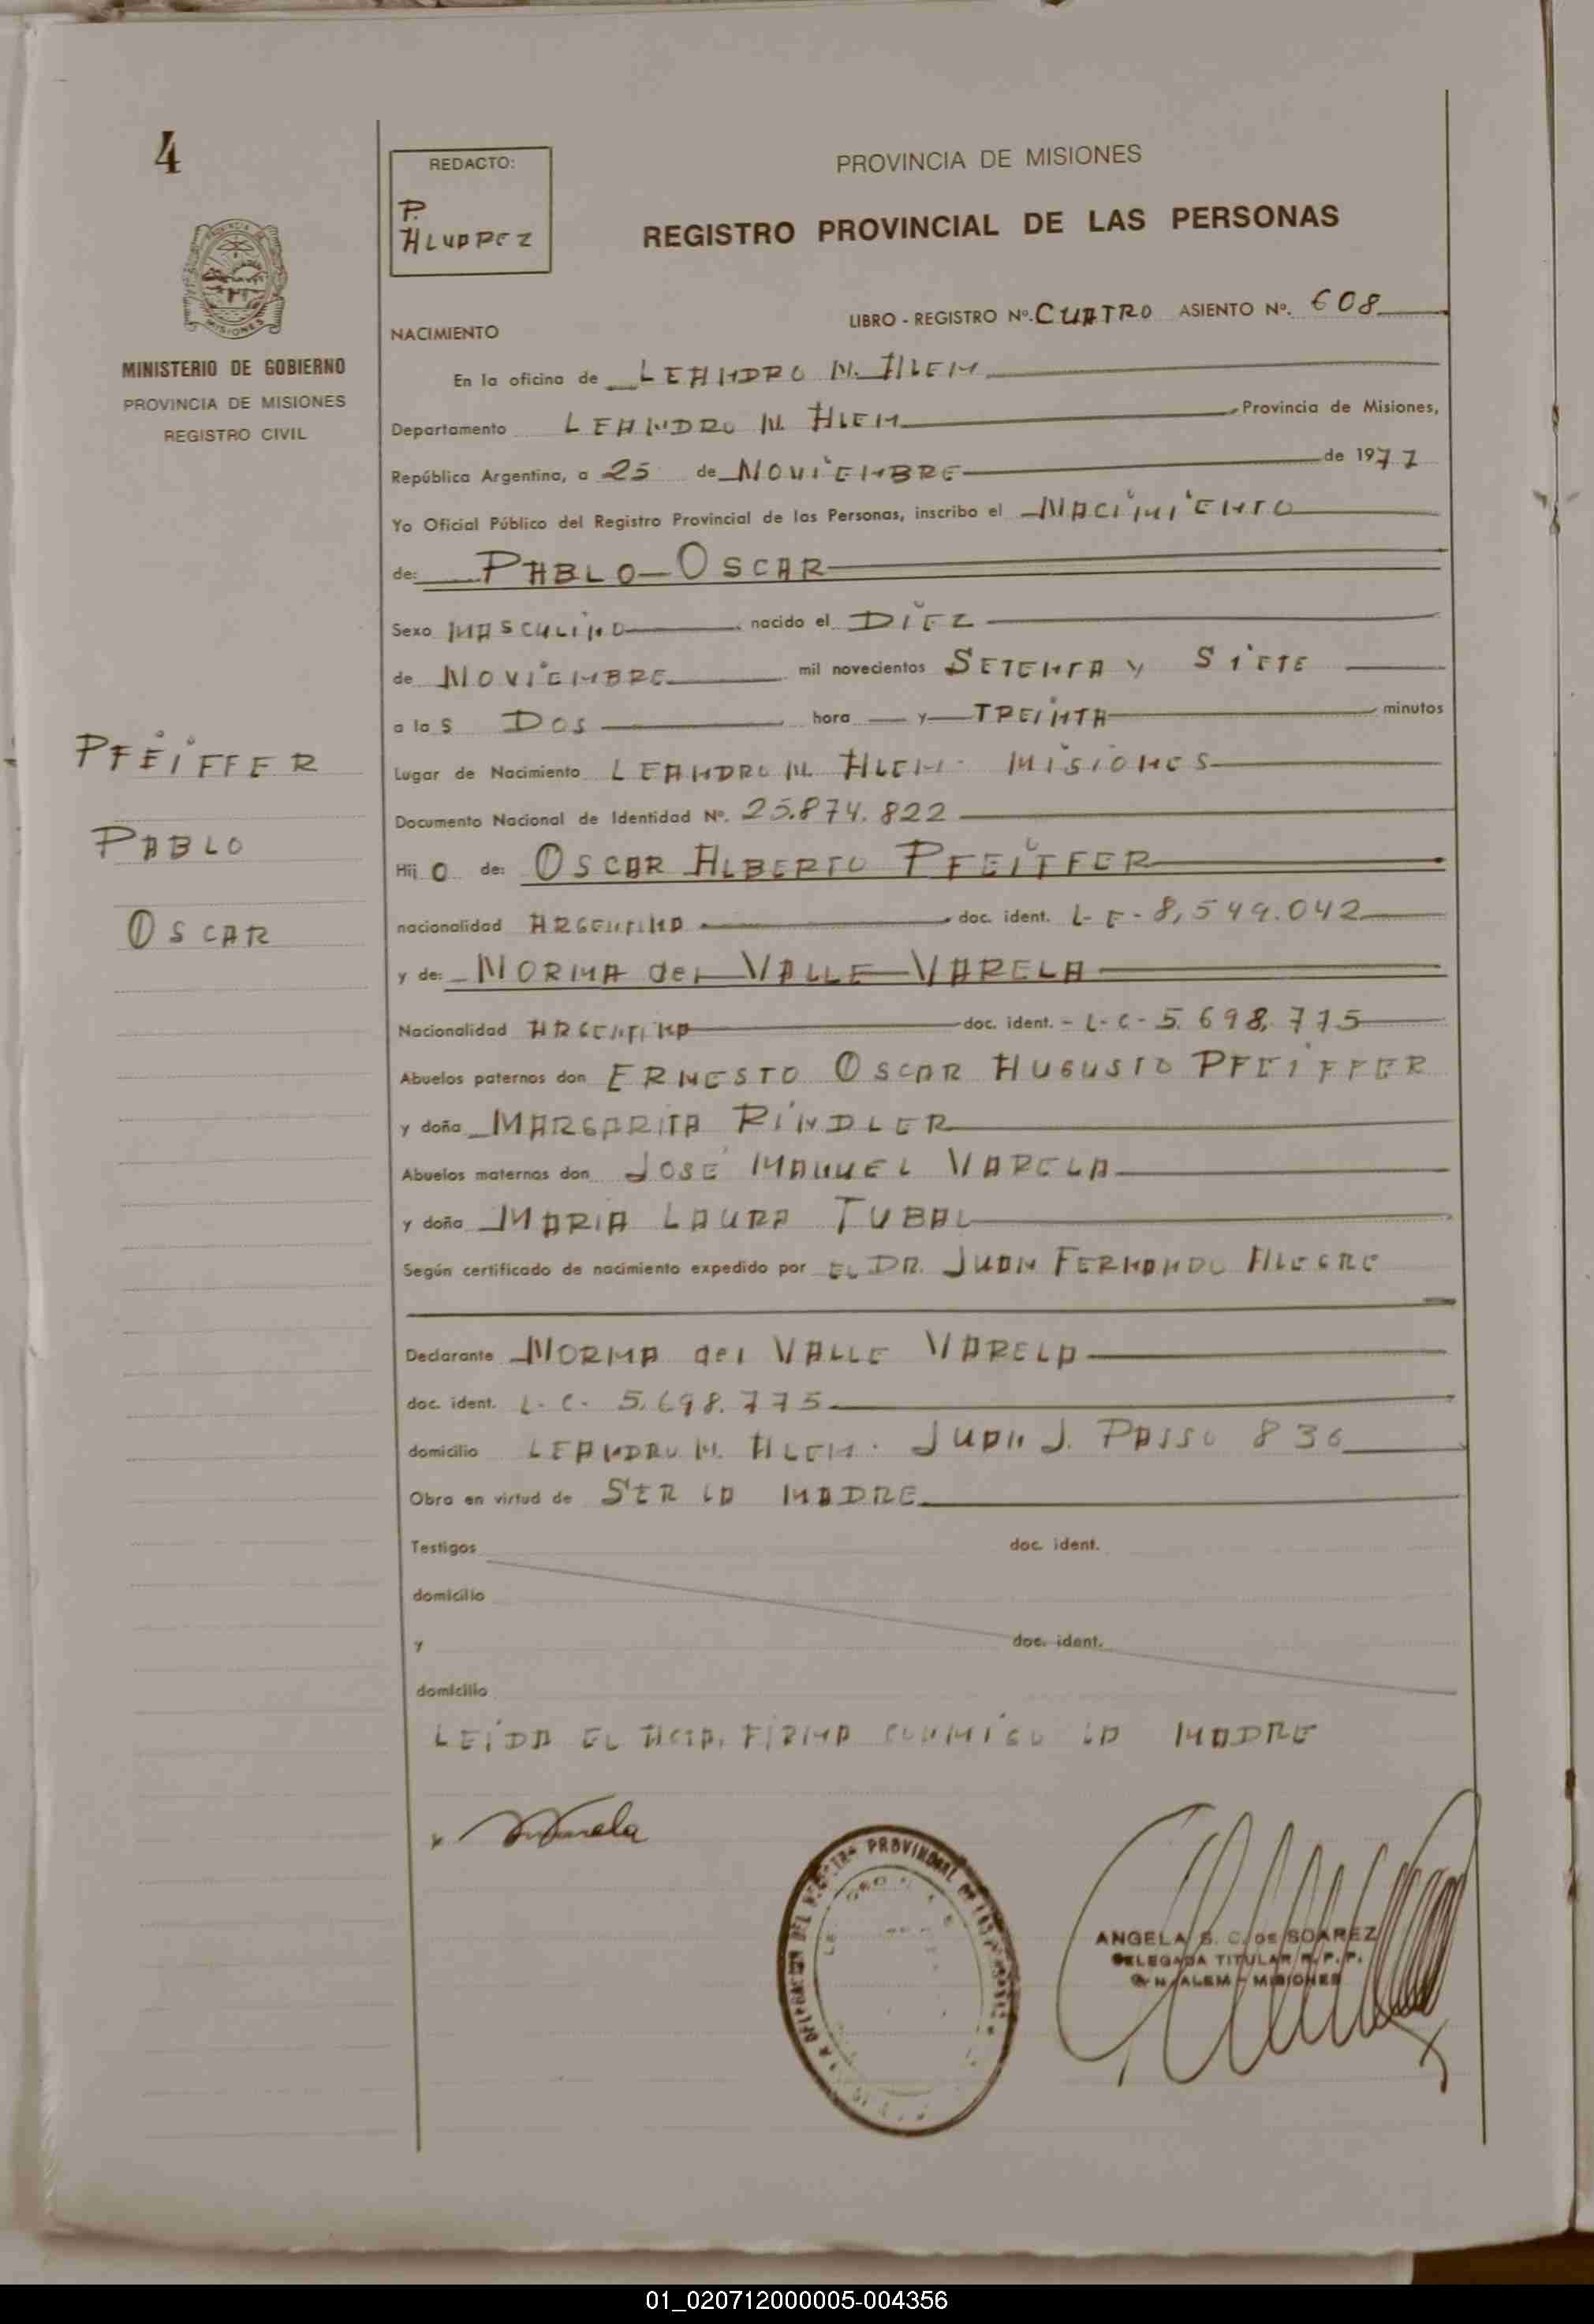 4
MINISTERIO DE GOBIERNO
PROVINCIA DE MISIONES
REGISTRO CIVIL
PFEIFFER
PABLO
OSCAR
REDACTO:
P.
PROVINCIA DE MISIONES
REGISTRO PROVINCIAL DE LAS PERSONAS
LIBRO - REGISTRO Nº. CUATRO ASIENTO Nº. 608
NACIMIENTO
En la oficina de LEANDRO N. ALEM
Departamento LEANDRO N. ALEM Provincia de Misiones,
República Argentina, a 25 de NOVIEMBRE de 1977
Yo Oficial Público del Registro Provincial de las Personas, inscribo el NACIMIENTO
de: PABLO OSCAR
Sexo MASCULINO nacido el DIEZ
de NOVIEMBRE mil novecientos SETENTA Y SIETE
a las DOS hora y TREINTA minutos
Lugar de Nacimiento LEANDRO N. ALEM - MISIONES
Documento Nacional de Identidad Nº. 25.874.822
Hijo de: OSCAR ALBERTO PFEIFFER
nacionalidad ARGENTINA doc. ident. L-E-8,549.042
y de: NORMA del VALLE VARELA
Nacionalidad ARGENTINA doc. ident. - L-C-5.698.775
Abuelos paternos don ERNESTO OSCAR AUGUSTO PFEIFFER
y doña MARGARITA RINDLER
Abuelos maternos don JOSÉ MANUEL VARELA
y doña MARIA LAURA TUBAL
Según certificado de nacimiento expedido por EL DR. JUAN FERNANDO ALEGRE
Declarante NORMA del VALLE VARELA
doc. ident. L-C- 5.698.775
domicilio LEANDRO N. ALEM. JUAN J. PASSO 836
Obra en virtud de SER LA MADRE
Testigos doc. ident.
domicilio
y doc. ident.
domicilio
LEIDA EL ACTA, FIRMA CONMIGO LA MADRE
ANGELA S. C. DE SOAREZ
DELEGADA TITULAR R. P. P.
L. N. ALEM - MISIONES
01_020712000005-004356